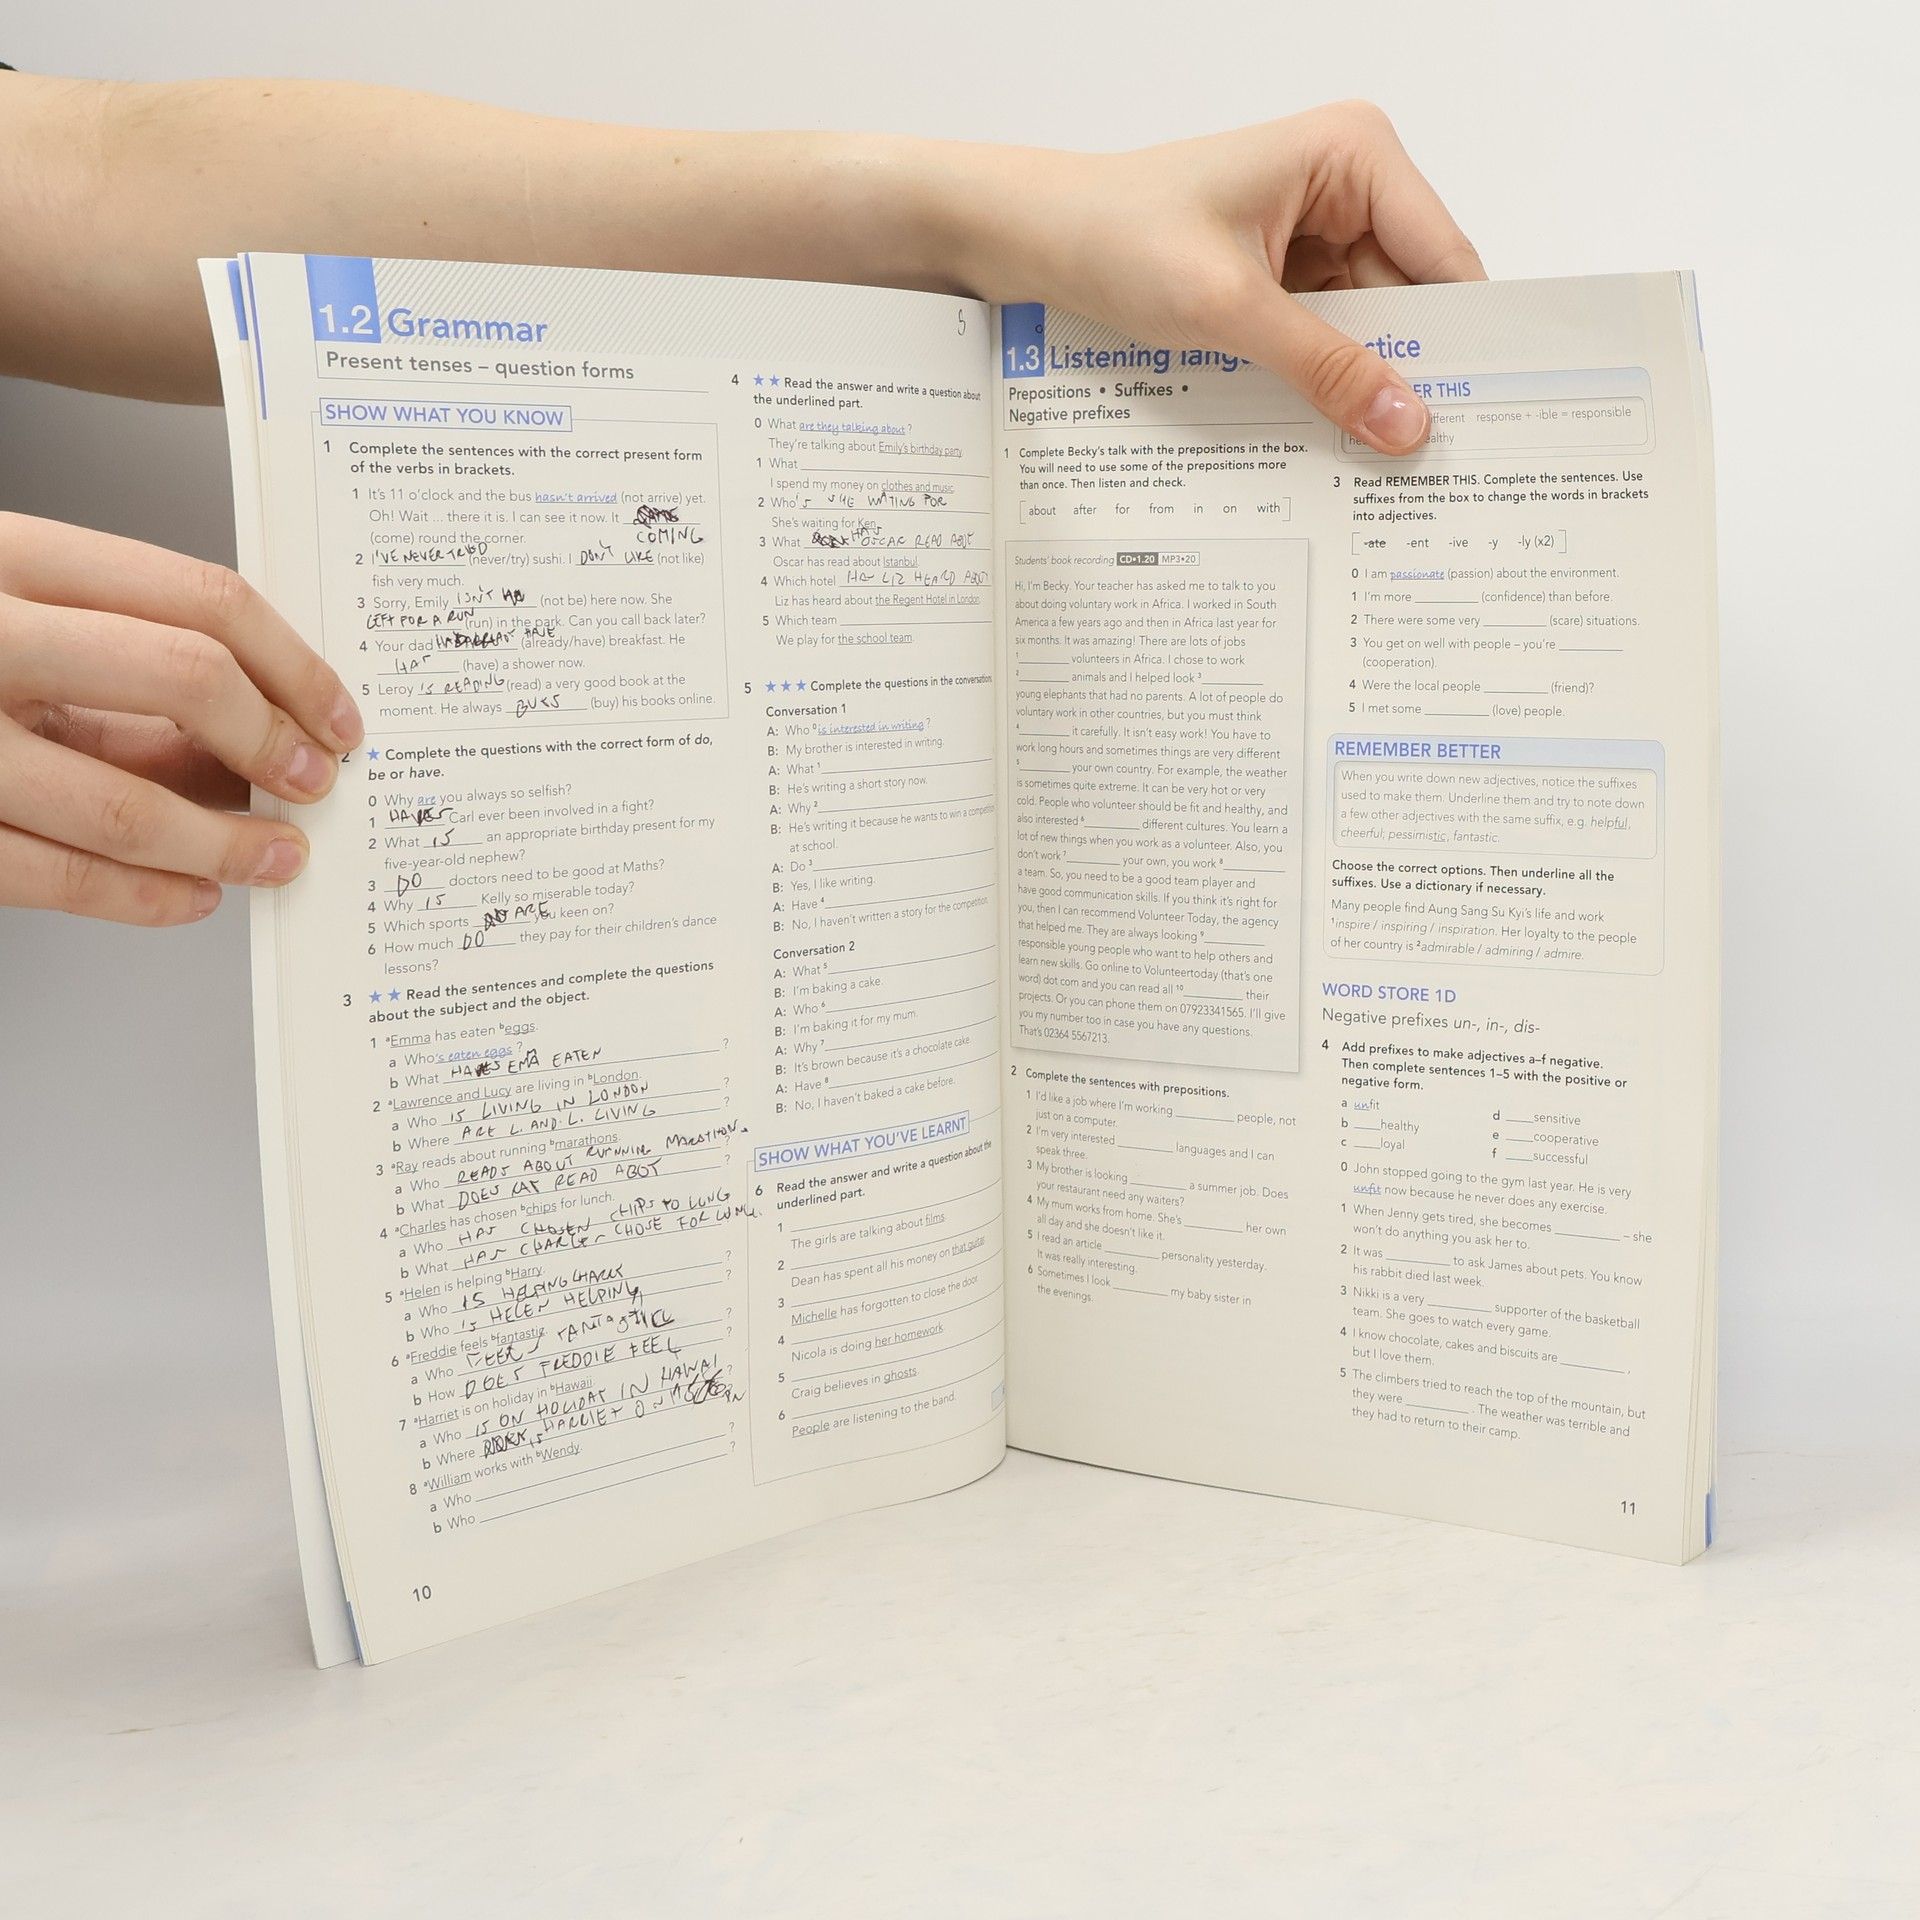 1.2 Grammar
Present tenses – question forms
SHOW WHAT YOU KNOW
1 Complete the sentences with the correct present form
of the verbs in brackets.
1 It's 11 o'clock and the bus hasn't arrived (not arrive) yet.
Oh! Wait ... there it is. I can see it now. It
(come) round the corner. COMING
2 I'VE NEVER TRIED (never/try) sushi. I DON'T LIKE (not like)
fish very much.
3 Sorry, Emily ISN'T (not be) here now. She
LEFT FOR A RUN (run) in the park. Can you call back later?
4 Your dad HAVE (already/have) breakfast. He
HAS (have) a shower now.
5 Leroy IS READING (read) a very good book at the
moment. He always BUYS (buy) his books online.
2 ★ Complete the questions with the correct form of do,
be or have.
0 Why are you always so selfish?
1 Carl ever been involved in a fight?
2 What IS an appropriate birthday present for my
five-year-old nephew?
3 DO doctors need to be good at Maths?
4 Why IS Kelly so miserable today?
5 Which sports ARE you keen on?
6 How much DO they pay for their children's dance
lessons?
3 ★★ Read the sentences and complete the questions
about the subject and the object.
1 ᵃEmma has eaten ᵇeggs.
a Who's eaten eggs ?
b What HAS EMA EATEN ?
2 ᵃLawrence and Lucy are living in ᵇLondon.
a Who IS LIVING IN LONDON ?
b Where ARE L. AND. L. LIVING ?
3 ᵃRay reads about running ᵇmarathons.
a Who READS ABOUT RUNNING MARATHON ?
b What DOES RAY READ ABOT ?
4 ᵃCharles has chosen ᵇchips for lunch.
a Who HAS CHOSEN CHIPS TO LUNG
b What HAS CHARLES CHOSE FOR ?
5 ᵃHelen is helping ᵇHarry.
a Who IS HELPING HARRY ?
b Who IS HELEN HELPING ?
6 ᵃFreddie feels ᵇfantastic.
a Who FEELS ?
b How DOES FREDDIE FEEL ?
7 ᵃHarriet is on holiday in ᵇHawaii.
a Who IS ON HOLIDAY IN HAWAI ?
b Where IS HARRIET ON ?
8 ᵃWilliam works with ᵇWendy.
a Who ?
b Who ?
10
4 ★★ Read the answer and write a question about
the underlined part.
0 What are they talking about ?
They're talking about Emily's birthday party.
1 What
I spend my money on clothes and music.
2 Who'S SHE WATING FOR
She's waiting for Ken.
3 What HAS OSCAR READ ABOUT
Oscar has read about Istanbul.
4 Which hotel HAS LIZ HEARD ABOUT
Liz has heard about the Regent Hotel in London.
5 Which team
We play for the school team.
5 ★★★ Complete the questions in the conversation
Conversation 1
A: Who ⁰is interested in writing?
B: My brother is interested in writing.
A: What ¹
B: He's writing a short story now.
A: Why ²
B: He's writing it because he wants to win a
at school.
A: Do ³
B: Yes, I like writing.
A: Have ⁴
B: No, I haven't written a story for the competition.
Conversation 2
A: What ⁵
B: I'm baking a cake.
A: Who ⁶
B: I'm baking it for my mum.
A: Why ⁷
B: It's brown because it's a chocolate cake.
A: Have ⁸
B: No, I haven't baked a cake before.
SHOW WHAT YOU'VE LEARNT
6 Read the answer and write a question about the
underlined part.
1
The girls are talking about films.
2
Dean has spent all his money on that guitar.
3
Michelle has forgotten to close the door.
4
Nicola is doing her homework.
5
Craig believes in ghosts.
6
People are listening to the band.
1.3 Listening
Prepositions • Suffixes •
Negative prefixes
1 Complete Becky's talk with the prepositions in the box.
You will need to use some of the prepositions more
than once. Then listen and check.
about after for from in on with
Students' book recording CD•1.20 MP3•20
Hi, I'm Becky. Your teacher has asked me to talk to you
about doing voluntary work in Africa. I worked in South
America a few years ago and then in Africa last year for
six months. It was amazing! There are lots of jobs
¹ volunteers in Africa. I chose to work
² animals and I helped look ³
young elephants that had no parents. A lot of people do
voluntary work in other countries, but you must think
⁴ it carefully. It isn't easy work! You have to
work long hours and sometimes things are very different
⁵ your own country. For example, the weather
is sometimes quite extreme. It can be very hot or very
cold. People who volunteer should be fit and healthy, and
also interested ⁶ different cultures. You learn a
lot of new things when you work as a volunteer. Also, you
don't work ⁷ your own, you work ⁸
a team. So, you need to be a good team player and
have good communication skills. If you think it's right for
you, then I can recommend Volunteer Today, the agency
that helped me. They are always looking ⁹
responsible young people who want to help others and
learn new skills. Go online to Volunteertoday (that's one
word) dot com and you can read all ¹⁰ their
projects. Or you can phone them on 07923341565. I'll give
you my number too in case you have any questions.
That's 02364 5567213.
2 Complete the sentences with prepositions.
1 I'd like a job where I'm working people, not
just on a computer.
2 I'm very interested languages and I can
speak three.
3 My brother is looking a summer job. Does
your restaurant need any waiters?
4 My mum works from home. She's her own
all day and she doesn't like it.
5 I read an article personality yesterday.
It was really interesting.
6 Sometimes I look my baby sister in
the evenings.
ctice
ER THIS
ifferent response + -ible = responsible
ealthy
3 Read REMEMBER THIS. Complete the sentences. Use
suffixes from the box to change the words in brackets
into adjectives.
-ate -ent -ive -y -ly (x2)
0 I am passionate (passion) about the environment.
1 I'm more (confidence) than before.
2 There were some very (scare) situations.
3 You get on well with people – you're
(cooperation).
4 Were the local people (friend)?
5 I met some (love) people.
REMEMBER BETTER
When you write down new adjectives, notice the suffixes
used to make them. Underline them and try to note down
a few other adjectives with the same suffix, e.g. helpful,
cheerful; pessimistic, fantastic.
Choose the correct options. Then underline all the
suffixes. Use a dictionary if necessary.
Many people find Aung Sang Su Kyi's life and work
¹inspire / inspiring / inspiration. Her loyalty to the people
of her country is ²admirable / admiring / admire.
WORD STORE 1D
Negative prefixes un-, in-, dis-
4 Add prefixes to make adjectives a–f negative.
Then complete sentences 1–5 with the positive or
negative form.
a unfit
b healthy
c loyal
d sensitive
e cooperative
f successful
0 John stopped going to the gym last year. He is very
unfit now because he never does any exercise.
1 When Jenny gets tired, she becomes – she
won't do anything you ask her to.
2 It was to ask James about pets. You know
his rabbit died last week.
3 Nikki is a very supporter of the basketball
team. She goes to watch every game.
4 I know chocolate, cakes and biscuits are ,
but I love them.
5 The climbers tried to reach the top of the mountain, but
they were . The weather was terrible and
they had to return to their camp.
11